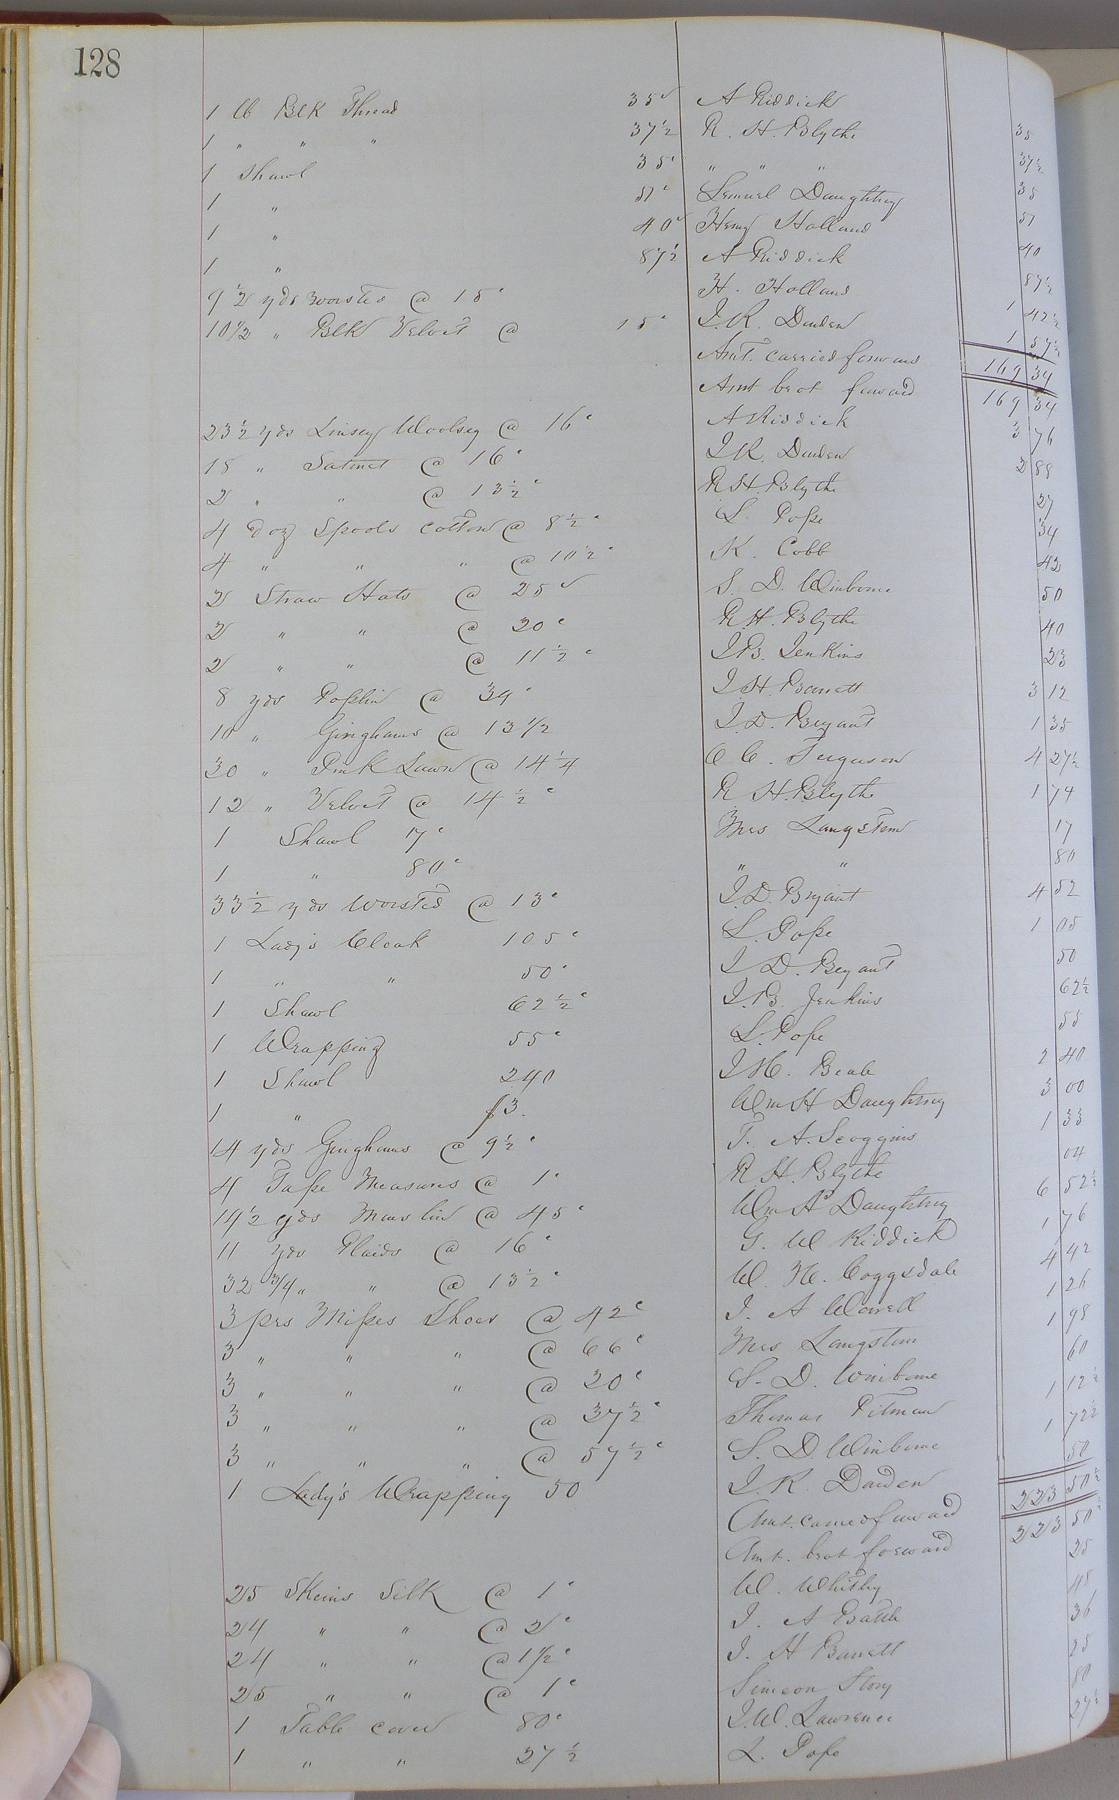 128
1 lb Blk Thread 35c A Riddick 35
1 " " " 37½ R. H. Blythe 37½
1 Shawl 35c " " " 35
1 " 51c Lemuel Daughtrey 51
1 " 40c Henry Holland 40
1 " 87½ A Riddick 87½
9½ yds worsted @ 15c H. Holland 1 42½
10½ " Blk Velvet @ 15c J. R. Darden 1 57½
Amt. carried forward 169 34
Amt brot forward 169 34
23½ yds Linsey Woolsey @ 16c A Riddick 3 76
18 " Satinet @ 16c J R. Darden 2 88
2 " " @ 13½c R H. Blythe 27
4 Doz Spools cotton @ 8½c L. Pope 34
4 " " " @ 10½c K. Cobb 42
2 Straw Hats @ 25c S. D. Winborne 50
2 " " @ 20c R. H. Blythe 40
2 " " @ 11½c J. B. Jenkins 23
8 yds Poplin @ 39c J H. Barrett 3 12
10 " Ginghams @ 13½ J. D. Bryant 1 35
30 " Pink Lawn @ 14¼ C C. Ferguson 4 27½
12 " Velvet @ 14½c R H. Blythe 1 74
1 Shawl 17c Mrs Langston 17
1 " 80c " " 80
33½ yds Worsted @ 13c J. D. Bryant 4 52
1 Lady's Cloak 105c L. Pope 1 05
1 " " 50c J. D. Bryant 50
1 Shawl 62½c J. B. Jenkins 62½
1 Wrapping 55c L. Pope 55
1 Shawl 240 J H. Beale 2 40
1 " $3. Wm H Daughtrey 3 00
14 yds Ginghams @ 9½c T. A. Scoggins 1 33
4 Tape Measures @ 1c R H. Blythe 04
14½ yds Muslin @ 45c Wm H Daughtrey 6 52½
11 yds Plaids @ 16c G. W Riddick 1 76
32 ¾ " " @ 13½c W. H. Coggsdale 4 42
3 prs Misses Shoes @ 42c J. A Worrell 1 26
3 " " " @ 66c Mrs Langston 1 98
3 " " " @ 20c S. D. Winborne 60
3 " " " @ 37½c Thomas Pitman 1 12½
3 " " " @ 57½c S. D Winborne 1 72½
1 Lady's Wrapping 50 J. R. Darden 50
Amt. carried forward 223 50½
Amt. brot forward 223 50½
25 Skeins Silk @ 1c W. Whitley 25
24 " " @ 2c J. A Battle 48
24 " " @ 1½c J. H Barrett 36
25 " " @ 1c Simeon Story 25
1 Table cover 80c J. W. Lawrence 80
1 " " 27½ L. Pope 27½